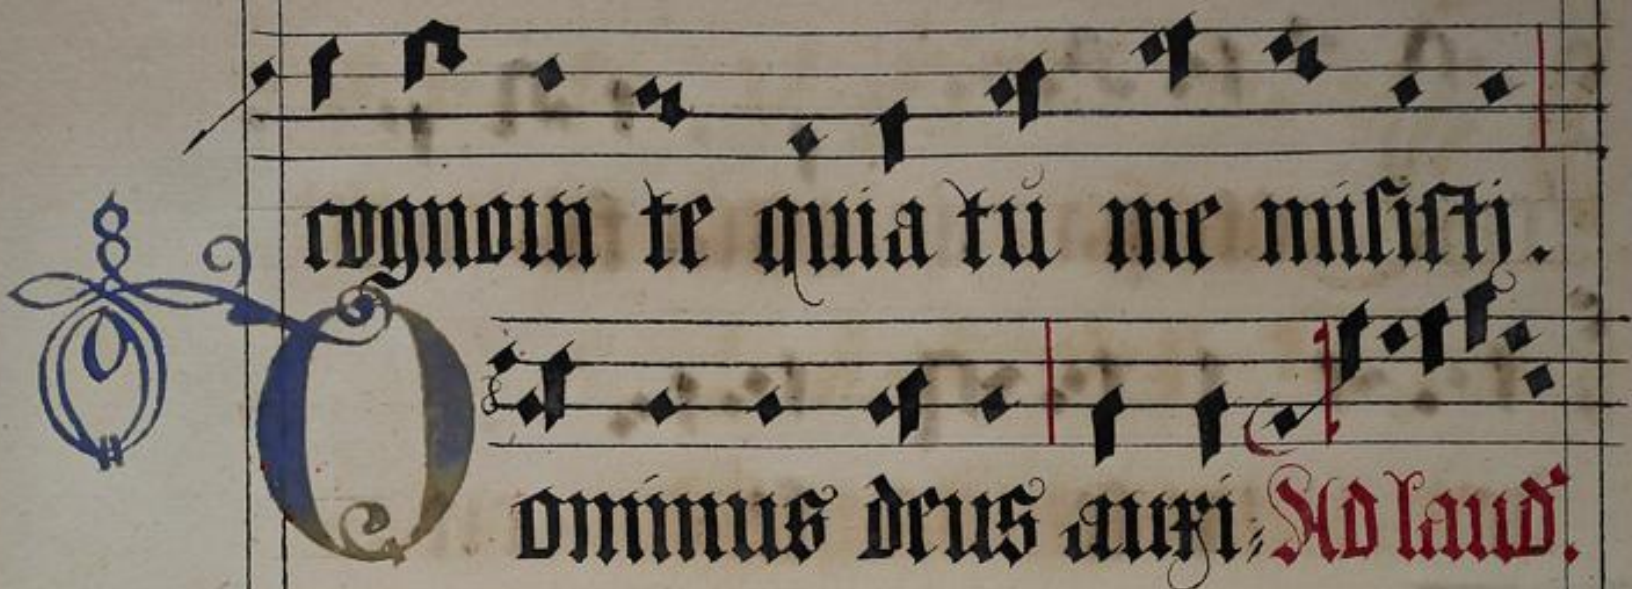 cognoui te quia tu me misisti.
Dominus deus auxi: Ad laud.